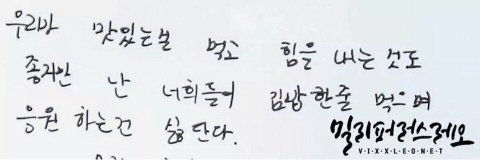 우리가 맛있는걸 먹고 힘을 내는 것도
좋지만 난 너희들이 김밥한줄 먹으며
응원 하는건 싫단다.
밀리퍼러스레오
VIXXLEONET